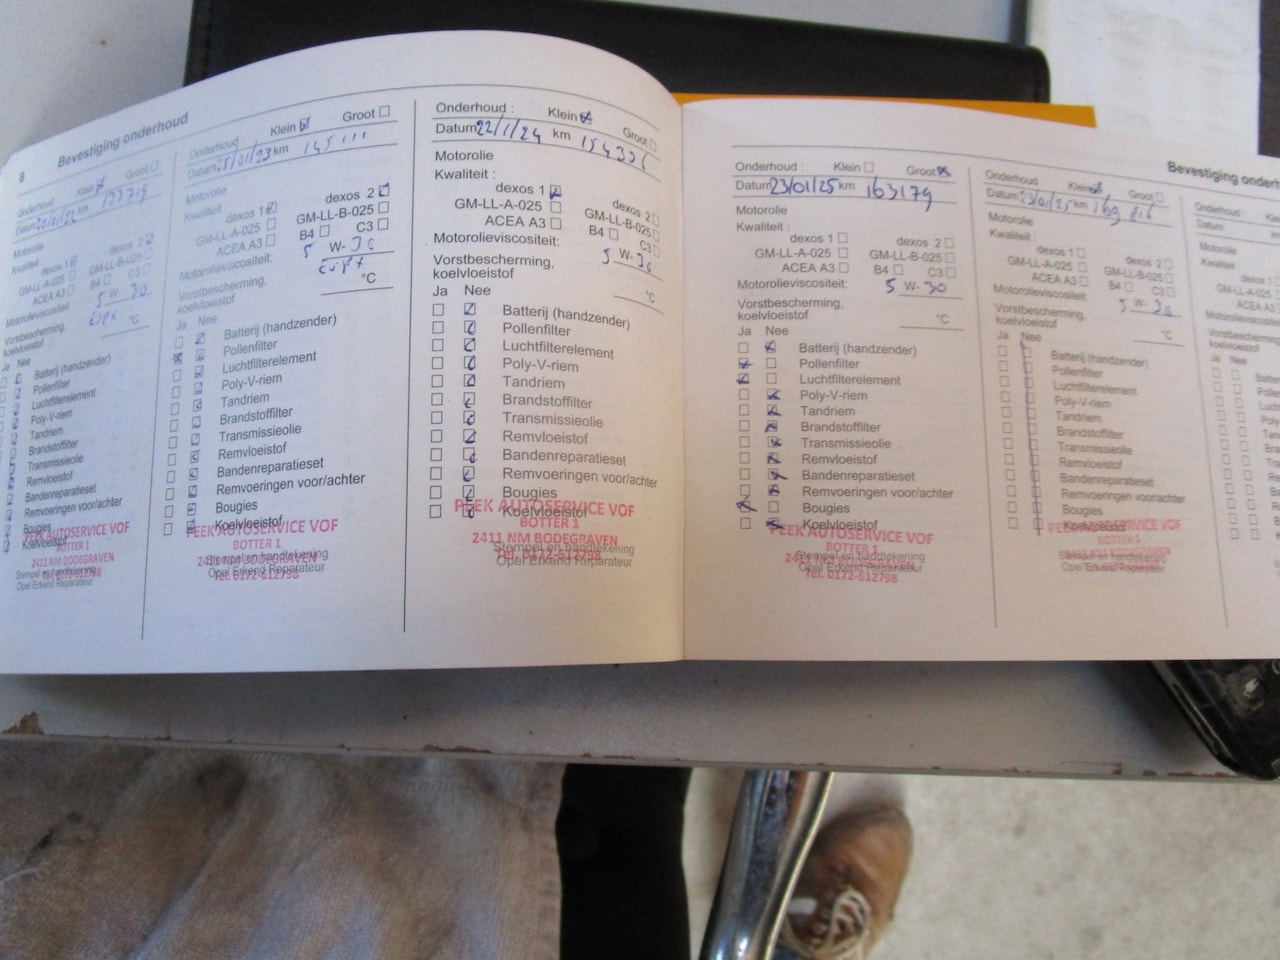 8
Bevestiging onderhoud
Onderhoud : Klein Groot
Datum km 133719
Motorolie
Kwaliteit : dexos 1 dexos 2
GM-LL-A-025 GM-LL-B-025
ACEA A3 B4 C3
Motorolieviscositeit: 5 W- 30
Vorstbescherming, °C
koelvloeistof
Ja Nee
Batterij (handzender)
Pollenfilter
Luchtfilterelement
Poly-V-riem
Tandriem
Brandstoffilter
Transmissieolie
Remvloeistof
Bandenreparatieset
Remvoeringen voor/achter
Bougies
Koelvloeistof
PEEK AUTOSERVICE VOF
BOTTER 1
2411 NM BODEGRAVEN
Tel. 0172-612798
Stempel en handtekening
Opel Erkend Reparateur
Onderhoud : Klein Groot
Datum 25/01/23 km 145111
Motorolie
Kwaliteit : dexos 1 dexos 2
GM-LL-A-025 GM-LL-B-025
ACEA A3 B4 C3
Motorolieviscositeit: 5 W- 30
Vorstbescherming, °C
koelvloeistof
Ja Nee
Batterij (handzender)
Pollenfilter
Luchtfilterelement
Poly-V-riem
Tandriem
Brandstoffilter
Transmissieolie
Remvloeistof
Bandenreparatieset
Remvoeringen voor/achter
Bougies
Koelvloeistof
PEEK AUTOSERVICE VOF
BOTTER 1
2411 NM BODEGRAVEN
Tel. 0172-612798
Stempel en handtekening
Opel Erkend Reparateur
Onderhoud : Klein Groot
Datum 22/1/24 km 154336
Motorolie
Kwaliteit : dexos 1 dexos 2
GM-LL-A-025 GM-LL-B-025
ACEA A3 B4 C3
Motorolieviscositeit: 5 W- 30
Vorstbescherming, °C
koelvloeistof
Ja Nee
Batterij (handzender)
Pollenfilter
Luchtfilterelement
Poly-V-riem
Tandriem
Brandstoffilter
Transmissieolie
Remvloeistof
Bandenreparatieset
Remvoeringen voor/achter
Bougies
Koelvloeistof
PEEK AUTOSERVICE VOF
BOTTER 1
2411 NM BODEGRAVEN
Tel. 0172-612798
Stempel en handtekening
Opel Erkend Reparateur
Bevestiging onderh
Onderhoud : Klein Groot
Datum 23/01/25 km 163179
Motorolie
Kwaliteit :
dexos 1 dexos 2
GM-LL-A-025 GM-LL-B-025
ACEA A3 B4 C3
Motorolieviscositeit: 5 W- 30
Vorstbescherming, °C
koelvloeistof
Ja Nee
Batterij (handzender)
Pollenfilter
Luchtfilterelement
Poly-V-riem
Tandriem
Brandstoffilter
Transmissieolie
Remvloeistof
Bandenreparatieset
Remvoeringen voor/achter
Bougies
Koelvloeistof
PEEK AUTOSERVICE VOF
BOTTER 1
2411 NM BODEGRAVEN
Tel. 0172-612798
Stempel en handtekening
Opel Erkend Reparateur
Onderhoud : Klein Groot
Datum 23/01/25 km
Motorolie
Kwaliteit :
dexos 1 dexos 2
GM-LL-A-025 GM-LL-B-025
ACEA A3 B4 C3
Motorolieviscositeit: 5 W- 30
Vorstbescherming, °C
koelvloeistof
Ja Nee
Batterij (handzender)
Pollenfilter
Luchtfilterelement
Poly-V-riem
Tandriem
Brandstoffilter
Transmissieolie
Remvloeistof
Bandenreparatieset
Remvoeringen voor/achter
Bougies
Koelvloeistof
PEEK AUTOSERVICE VOF
BOTTER 1
2411 NM BODEGRAVEN
Tel. 0172-612798
Stempel en handtekening
Opel Erkend Reparateur
Onderhoud :
Datum
Motorolie
Kwaliteit :
dexos 1
GM-LL-A-025
ACEA A3
Motorolieviscositeit
Vorstbescherming,
koelvloeistof
Ja Nee